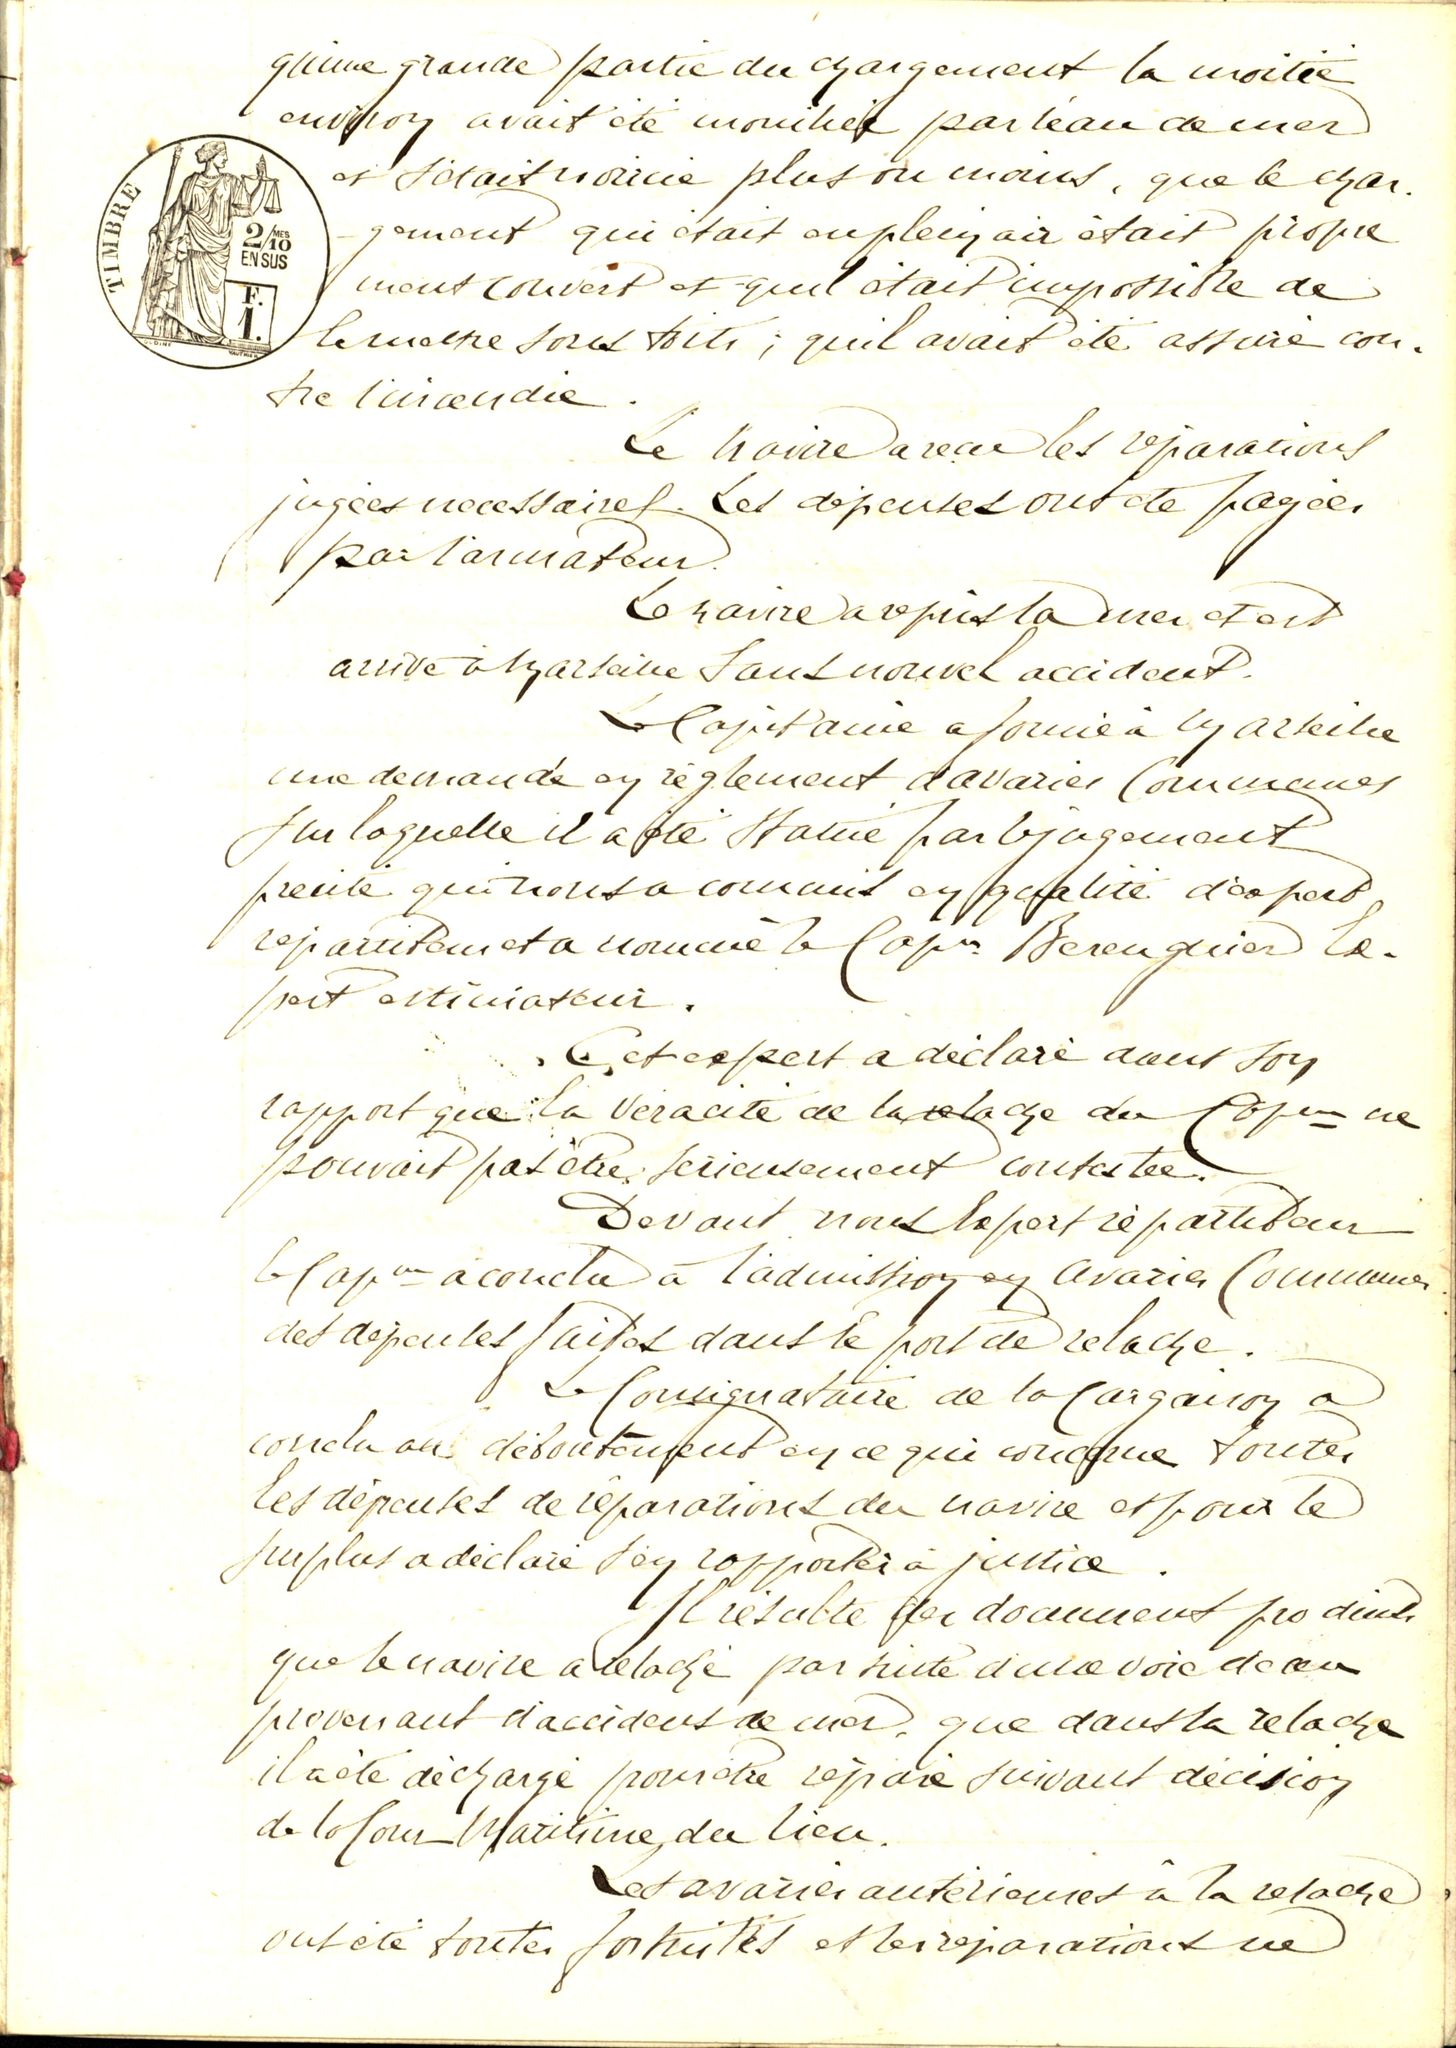 qu'une grande partie du chargement la moitié
environ avait été mouillée par l'eau de mer
et s'était noircie plus ou moins, que le char-
gement qui était en plein air était propre
ment couvert et qu'il était impossible de
le mettre sous toits ; qu'il avait été assuré con-
tre l'incendie.
TIMBRE
2/10 MES
EN SUS
F.
1.
Le Navire a reçu les réparations
jugées necessaires. Les dépenses ont été payées
par l'armateur.
Le navire a repris la mer et est
arrivé à Marseille sans nouvel accident.
Le Capitaine a formé à Marseille
une demande en règlement d'avaries Communes
sur laquelle il a été statué par le jugement
précité qui nous a commis en qualité d'expert
répartiteur et a nommé le Capne Berenguier Ex-
pert estimateur.
Cet expert a déclaré dans son
rapport que la véracité de la relache du Capne ne
pouvait pas être sérieusement contestée.
Devant nous Expert répartiteur
le Capne a conclu à l'admission en Avaries Communes
des dépenses faites dans le port de relache.
Le Consignataire de la Cargaison a
conclu au déboutement en ce qui concerne toutes
les dépenses de réparations du navire et pour le
surplus a déclaré s'en rapporter à justice.
Il résulte des document produits
que le navire a relaché par suite d'une voie d'eau
provenant d'accidens de mer, que dans la relache
il a été déchargé pour être réparé suivant décision
de la Cour Maritime du lieu.
Les avaries antérieures à la relache
ont été toutes fortuites et les réparations ne